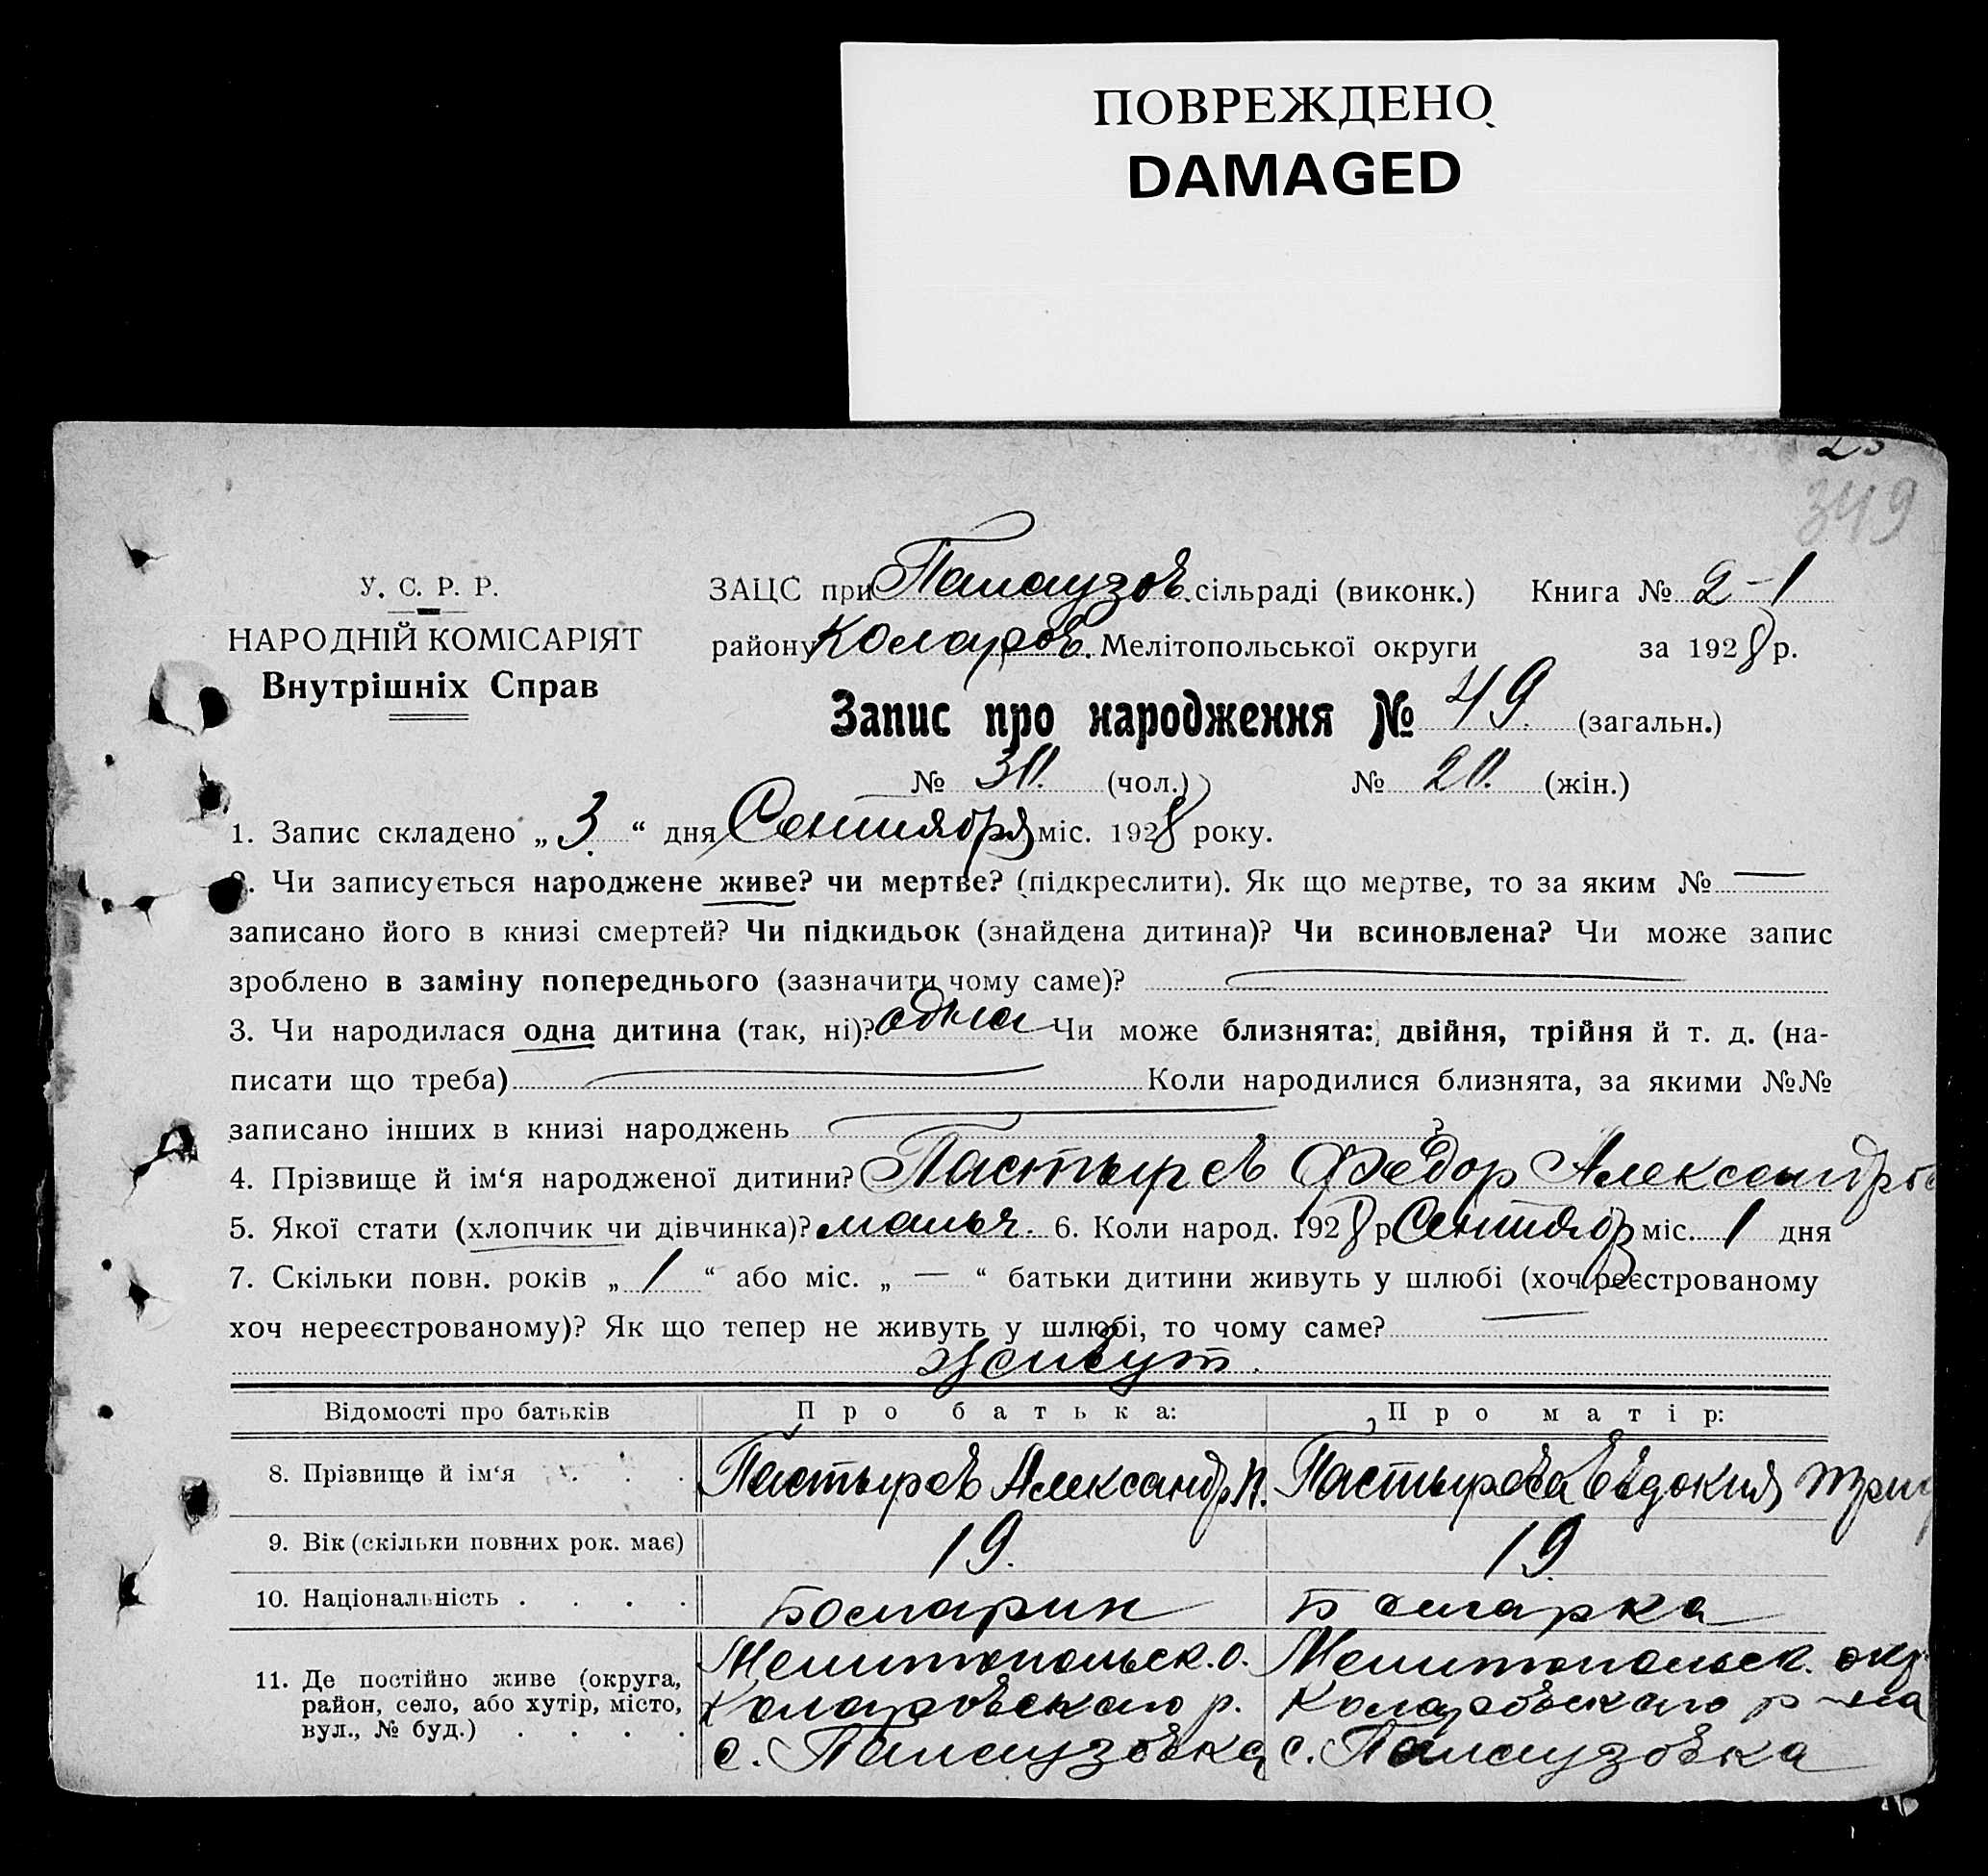 ПОВРЕЖДЕНО
DAMAGED
349
У. С. Р. Р.
НАРОДНІЙ КОМІСАРІЯТ
Внутрішніх Справ
ЗАЦС при Палаузов. сільраді (виконк.) Книга № 2-1
району Коларов. Мелітопольської округи за 1928 р.
Запис про народження № 49. (загальн.)
№ (чол.) № (жін.)
1. Запис складено „3." дня Сентября міс. 1928 року.
2. Чи записується народжене живе? чи мертве? (підкреслити). Як що мертве, то за яким № —
записано його в книзі смертей? Чи підкидьок (знайдена дитина)? Чи всиновлена? Чи може запис
зроблено в заміну попереднього (зазначити чому саме)?
3. Чи народилася одна дитина (так, ні)? одна Чи може близнята: двійня, трійня й т. д. (на-
писати що треба) Коли народилися близнята, за якими №№
записано інших в книзі народжень
4. Прізвище й ім‘я народженої дитини? Пастырев Федор Александров
5. Якої стати (хлопчик чи дівчинка)? мальч. 6. Коли народ. 1928 р. Сентябр міс. 1 дня
7. Скільки повн. років „1“ або міс. „—“ батьки дитини живуть у шлюбі (хоч реєстрованому
хоч нереєстрованому)? Як що тепер не живуть у шлюбі, то чому саме? —
живут.
Відомості про батьків Про батька: Про матір:
8. Прізвище й ім‘я . . . Пастырев Александр П. Пастырева Евдокия
9. Вік (скільки повних рок. має) 19. 19.
10. Національність . . . . Болгарин Болгарка
11. Де постійно живе (округа, Мелитопольск. о. Мелитопольск. окр.
район, село, або хутір, місто, Коларовского р. Коларовского р-на
вул., № буд.) . . . . с. Палаузовка с. Палаузовка